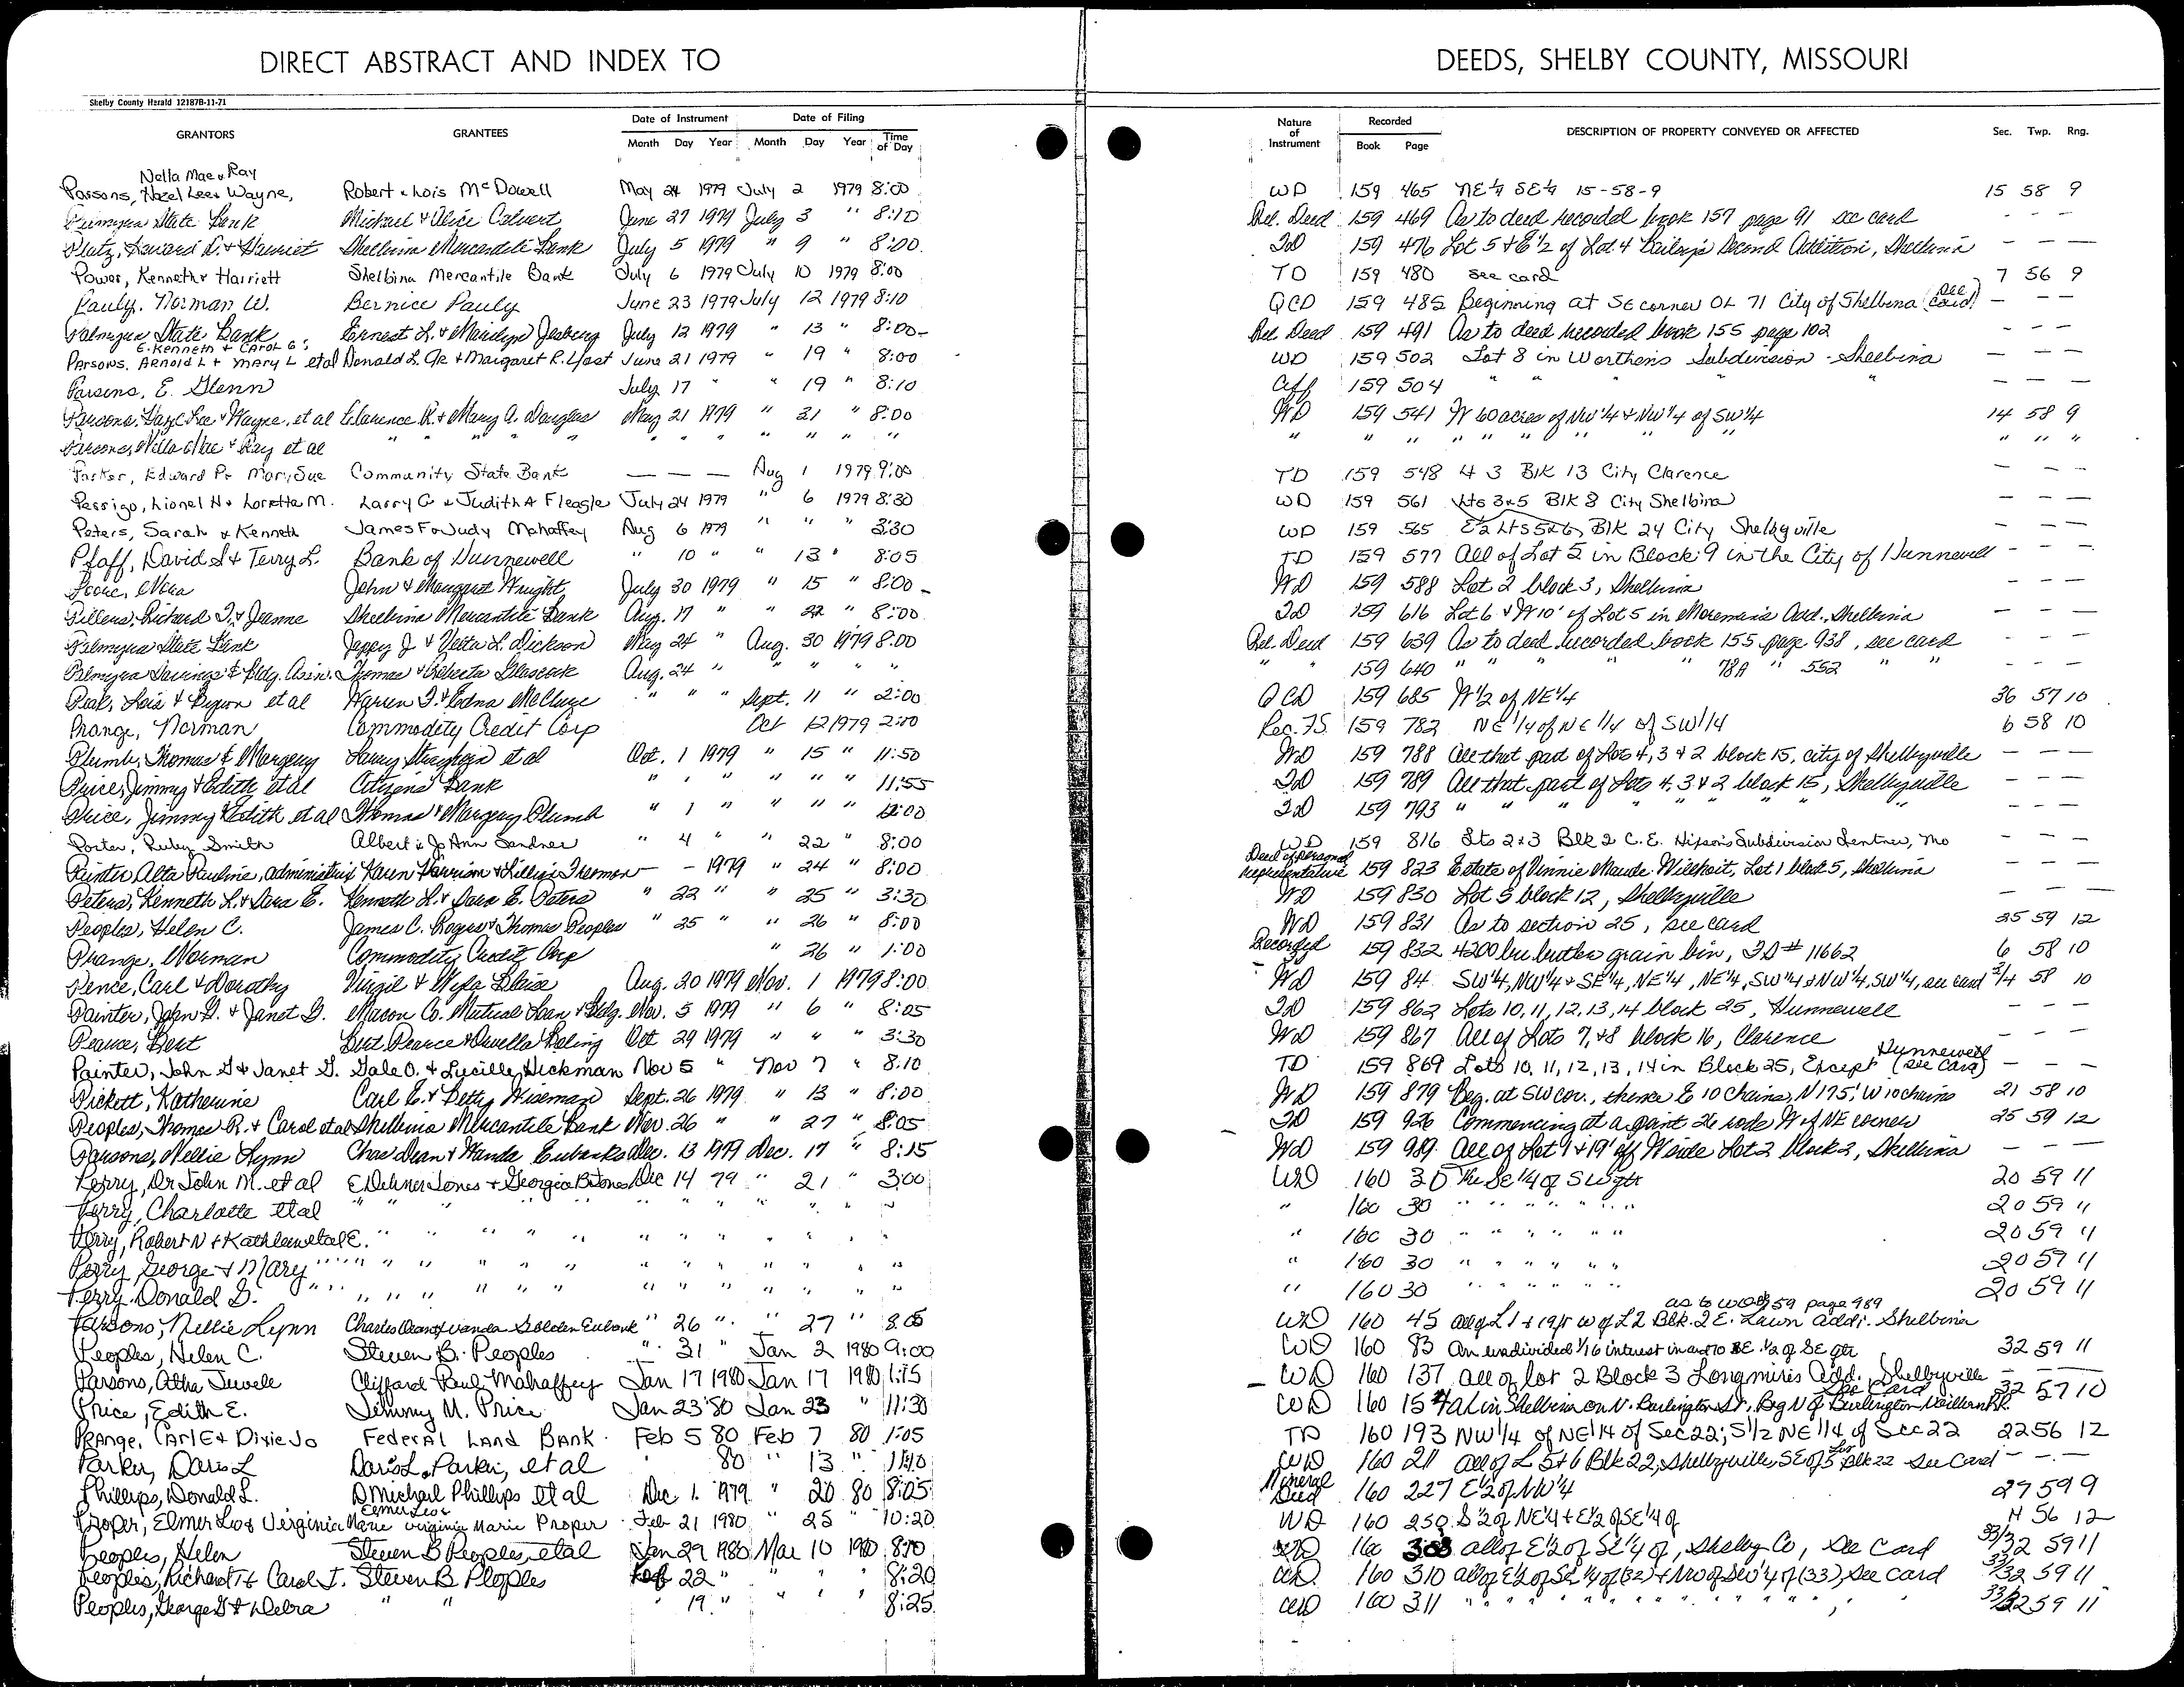 DIRECT ABSTRACT AND INDEX TO
DEEDS, SHELBY COUNTY, MISSOURI
Shelby County Herald 12187B-11-71
GRANTORS GRANTEES Date of Instrument Date of Filing Nature of Instrument Recorded DESCRIPTION OF PROPERTY CONVEYED OR AFFECTED Sec. Twp. Rng.
Month Day Year Month Day Year Time of Day Book Page
Nella Mae & Ray
Parsons, Hazel Lee & Wayne, Robert & Lois McDowell May 24 1979 July 2 1979 8:00 WD 159 465 NE¼ SE¼ 15-58-9 15 58 9
Palmyra State Bank Michael & Alice Calvert June 27 1979 July 3 " 8:10 Rel. Deed 159 469 As to deed recorded book 157 page 91 see card - - -
Platz, & Harriet Shelbina Mercantile Bank July 5 1979 " 9 " 8:00 TD 159 476 Lot 5 & E½ of Lot 4 Second Addition, Shelbina - - -
Power, Kenneth & Harriett Shelbina Mercantile Bank July 6 1979 July 10 1979 8:00 TD 159 480 see card 7 56 9
Pauly, Norman W. Bernice Pauly June 23 1979 July 12 1979 8:10 QCD 159 485 Beginning at SE corner OL 71 City of Shelbina (see card) - - -
Palmyra State Bank Ernest L. & Marilyn July 12 1979 " 13 " 8:00 Rel Deed 159 491 As to deed recorded book 155 page 102 - - -
E. Kenneth & Carol G;
Parsons, Arnold L & Mary L etal Donald L. Jr. & Margaret R. Yost June 21 1979 " 19 " 8:00 WD 159 502 Lot 8 in Worthens Subdivision - Shelbina - - -
Parsons, E. Glenn July 17 " " 19 " 8:10 Aff 159 504 " " " " - - -
Parsons, Hazel Lee & Wayne, et al Clarence R. & Mary A. Douglas May 21 1979 " 31 " 8:00 WD 159 541 W 60 acres of NW¼ & NW¼ of SW¼ 14 58 9
Parsons, Nella Mae & Ray et al " " " " " " " " " " " " " " " " " " " " " "
Parker, Edward P & Mary Sue Community State Bank - - - Aug 1 1979 9:00 TD 159 548 Lt 3 Blk 13 City Clarence - - -
Persigo, Lionel H & Loretta M. Larry G & Judith A Fleagle July 24 1979 " 6 1979 8:30 WD 159 561 Lts 3&5 Blk 8 City Shelbina - - -
Peters, Sarah & Kenneth James F & Judy Mahaffey Aug 6 1979 " " " 3:30 WD 159 565 E½ Lts 5&6, Blk 24 City Shelbyville - - -
Pfaff, David S & Terry L. Bank of Hunnewell " 10 " " 13 " 8:05 TD 159 577 All of Lot 5 in Block 9 in the City of Hunnewell - - -
John & Margaret Wright July 30 1979 " 15 " 8:00 WD 159 588 Lot 2 block 3, Shelbina - - -
Pillers, Richard & Jeanne Shelbina Mercantile Bank Aug. 17 " " 22 " 8:00 TD 159 616 Lot 6 & W 10' of Lot 5 in Add., Shelbina - - -
Palmyra State Bank Jerry J & Veeta L. Dickson May 24 " Aug. 30 1979 8:00 Rel. Deed 159 639 As to deed recorded book 155 page 938, see card - - -
Palmyra Savings & Bldg. Assn. Thomas & Roberta Glascock Aug. 24 " " " " " " " 159 640 " " " " 78A " 552 " " - - -
Peak, Lois & Byron et al Warren & Edna McClure " " " Sept. 11 " 2:00 QCD 159 685 W½ of NE¼ 36 57 10
Prange, Norman Commodity Credit Corp Oct 12 1979 2:00 Rec. FS 159 782 NE¼ of NE¼ of SW¼ 6 58 10
Plumb, Thomas & Margery Larry et al Oct. 1 1979 " 15 " 11:50 WD 159 788 All that part of Lots 4, 3 & 2 block 15, city of Shelbyville - - -
Price, Jimmy & Edith et al Citizens Bank " " " " " " 11:55 TD 159 789 All that part of Lots 4, 3 & 2 block 15, Shelbyville - - -
Price, Jimmy & Edith et al Thomas & Margery Plumb " 1 " " " " TD 159 793 " " " " " " " - - -
Porter, Ruby Smith Albert & Jo Ann Sandner " 4 " " 22 " 8:00 WD 159 816 Lts 2&3 Blk 2 C.E. Hixson's Subdivision Lentner, Mo - - -
Painter, Alta Pauline, administratrix Karen Harrison & Lillian - 1979 " 24 " 8:00 Deed of Personal Representative 159 823 Estate of Vinnie Maude Wilhoit, Lot 1 block 5, Shelbina - - -
Peters, Kenneth L. & Sara E. Kenneth L. & Sara E. Peters " 22 " " 25 " 3:30 WD 159 830 Lot 5 block 12, Shelbyville - - -
Peoples, Helen C. James C. Rogers & Thomas Peoples " 25 " " 26 " 8:00 WD 159 831 As to section 25, see card 25 59 12
Prange, Norman Commodity Credit Corp " 26 " 1:00 Recorded 159 832 4200 bu butler grain bin, ID# 11662 6 58 10
Pence, Carl & Dorothy Virgil & Blaise Aug. 20 1979 Nov. 1 1979 8:00 WD 159 84 SW¼, NW¼ & SE¼, NE¼, NE¼, SW¼ & NW¼, SW¼, see card 3/4 58 10
Painter, John G. & Janet G. Macon Co. Mutual Loan & Bldg. Nov. 5 1979 " 6 " 8:05 TD 159 862 Lots 10, 11, 12, 13, 14 block 25, Hunnewell - - -
Pearce, Bert Bert Pearce & Orvella Boling Oct 29 1979 " " " 3:30 WD 159 867 All of Lots 7, & 8 block 16, Clarence - - -
Painter, John G & Janet G. Gale O. & Lucille Hickman Nov 5 " Nov 7 " 8:10 TD 159 869 Lots 10, 11, 12, 13, 14 in Block 25, Except Hunnewell (see card) - - -
Pickett, Katherine Carl E. & Betty Wiseman Sept. 26 1979 " 13 " 8:00 WD 159 879 Beg. at SW cor., thence E 10 chains, N 175', W 10 chains 21 58 10
Peoples, Thomas R. & Carol et al Shelbina Mercantile Bank Nov. 26 " " 27 " 8:05 TD 159 926 Commencing at a point 26 rods W of NE corner 25 59 12
Parsons, Nellie Lynn Chas Dean & Wanda Eubanks Dec. 13 1979 Dec. 17 " 8:15 WD 159 989 All of Lot 1 & 19' off W side Lot 2 block 2, Shelbina - - -
Perry, Dr John M. et al E Delmer Jones & Georgia B Jones Dec 14 79 " 21 " 3:00 WD 160 30 The SE¼ of SW qtr 20 59 11
Perry, Charlotte etal " " " " " " " " " 160 30 " " " " " 20 59 11
Perry, Robert N & Kathleen E. etal " " " " " " " " " " 160 30 " " " " " 20 59 11
Perry, George & Mary " " " " " " " " " " " 160 30 " " " " " " 20 59 11
Perry, Donald D. " " " " " " " " " " " 160 30 " " " " " 20 59 11
as to WD 159 page 989
Parsons, Nellie Lynn Charles Dean & Wanda Golden Eubank " 26 " " 27 " 8:05 WD 160 45 all of L1 & 19ft W of L2 Blk. 2 E. Lawn addi. Shelbina
Peoples, Helen C. Steven B. Peoples " 31 " Jan 2 1980 9:00 WD 160 83 An undivided 1/16 interest in and to E½ of SE qtr 32 59 11
Parsons, Altha Jewell Clifford Paul Mahaffey Jan 17 1980 Jan 17 1980 1:15 WD 160 137 all of lot 2 Block 3 Longmires Add., Shelbyville - - -
See Card
Price, Edith E. Jimmy M. Price Jan 23 '80 Jan 23 " 11:30 WD 160 in Shelbina on N. Burlington St., Beg N of Burlington RR. 32 57 10
Prange, Carl E & Dixie Jo Federal Land Bank Feb 5 80 Feb 7 80 1:05 TD 160 193 NW¼ of NE¼ of Sec 22; S½ NE¼ of Sec 22 22 56 12
Parker, Doris L Doris L. Parker, et al 80 " 13 " WD 160 211 all of L 5&6 Blk 22, Shelbyville, SE of 5 Blk 22 See Card - - -
Phillips, Donald L. D Michael Phillips et al Dec 1 1979 " 20 80 8:05 Mineral Deed 160 227 E½ of NW¼ 27 59 9
Proper, Elmer Leo & Virginia Marie Elmer Leo & Virginia Marie Proper Feb 21 1980 " 25 " 10:20 WD 160 250 S½ of NE¼ & E½ of SE¼ of 4 56 12
Peoples, Helen Steven B Peoples, etal Jan 29 1980 Mar 10 1980 WD 160 308 all of E½ of SE¼ of, Shelby Co, See Card 33/32 59 11
Peoples, Richard T & Carol J. Steven B Peoples Feb 22 " " " " 8:20 WD 160 310 all of E½ of SE¼ of (32) & NW of SW¼ of (33), See card 33/32 59 11
Peoples, George G & Debra " " " 19 " " " " 8:25 WD 160 311 " " " " " " " " " 33/32 59 11